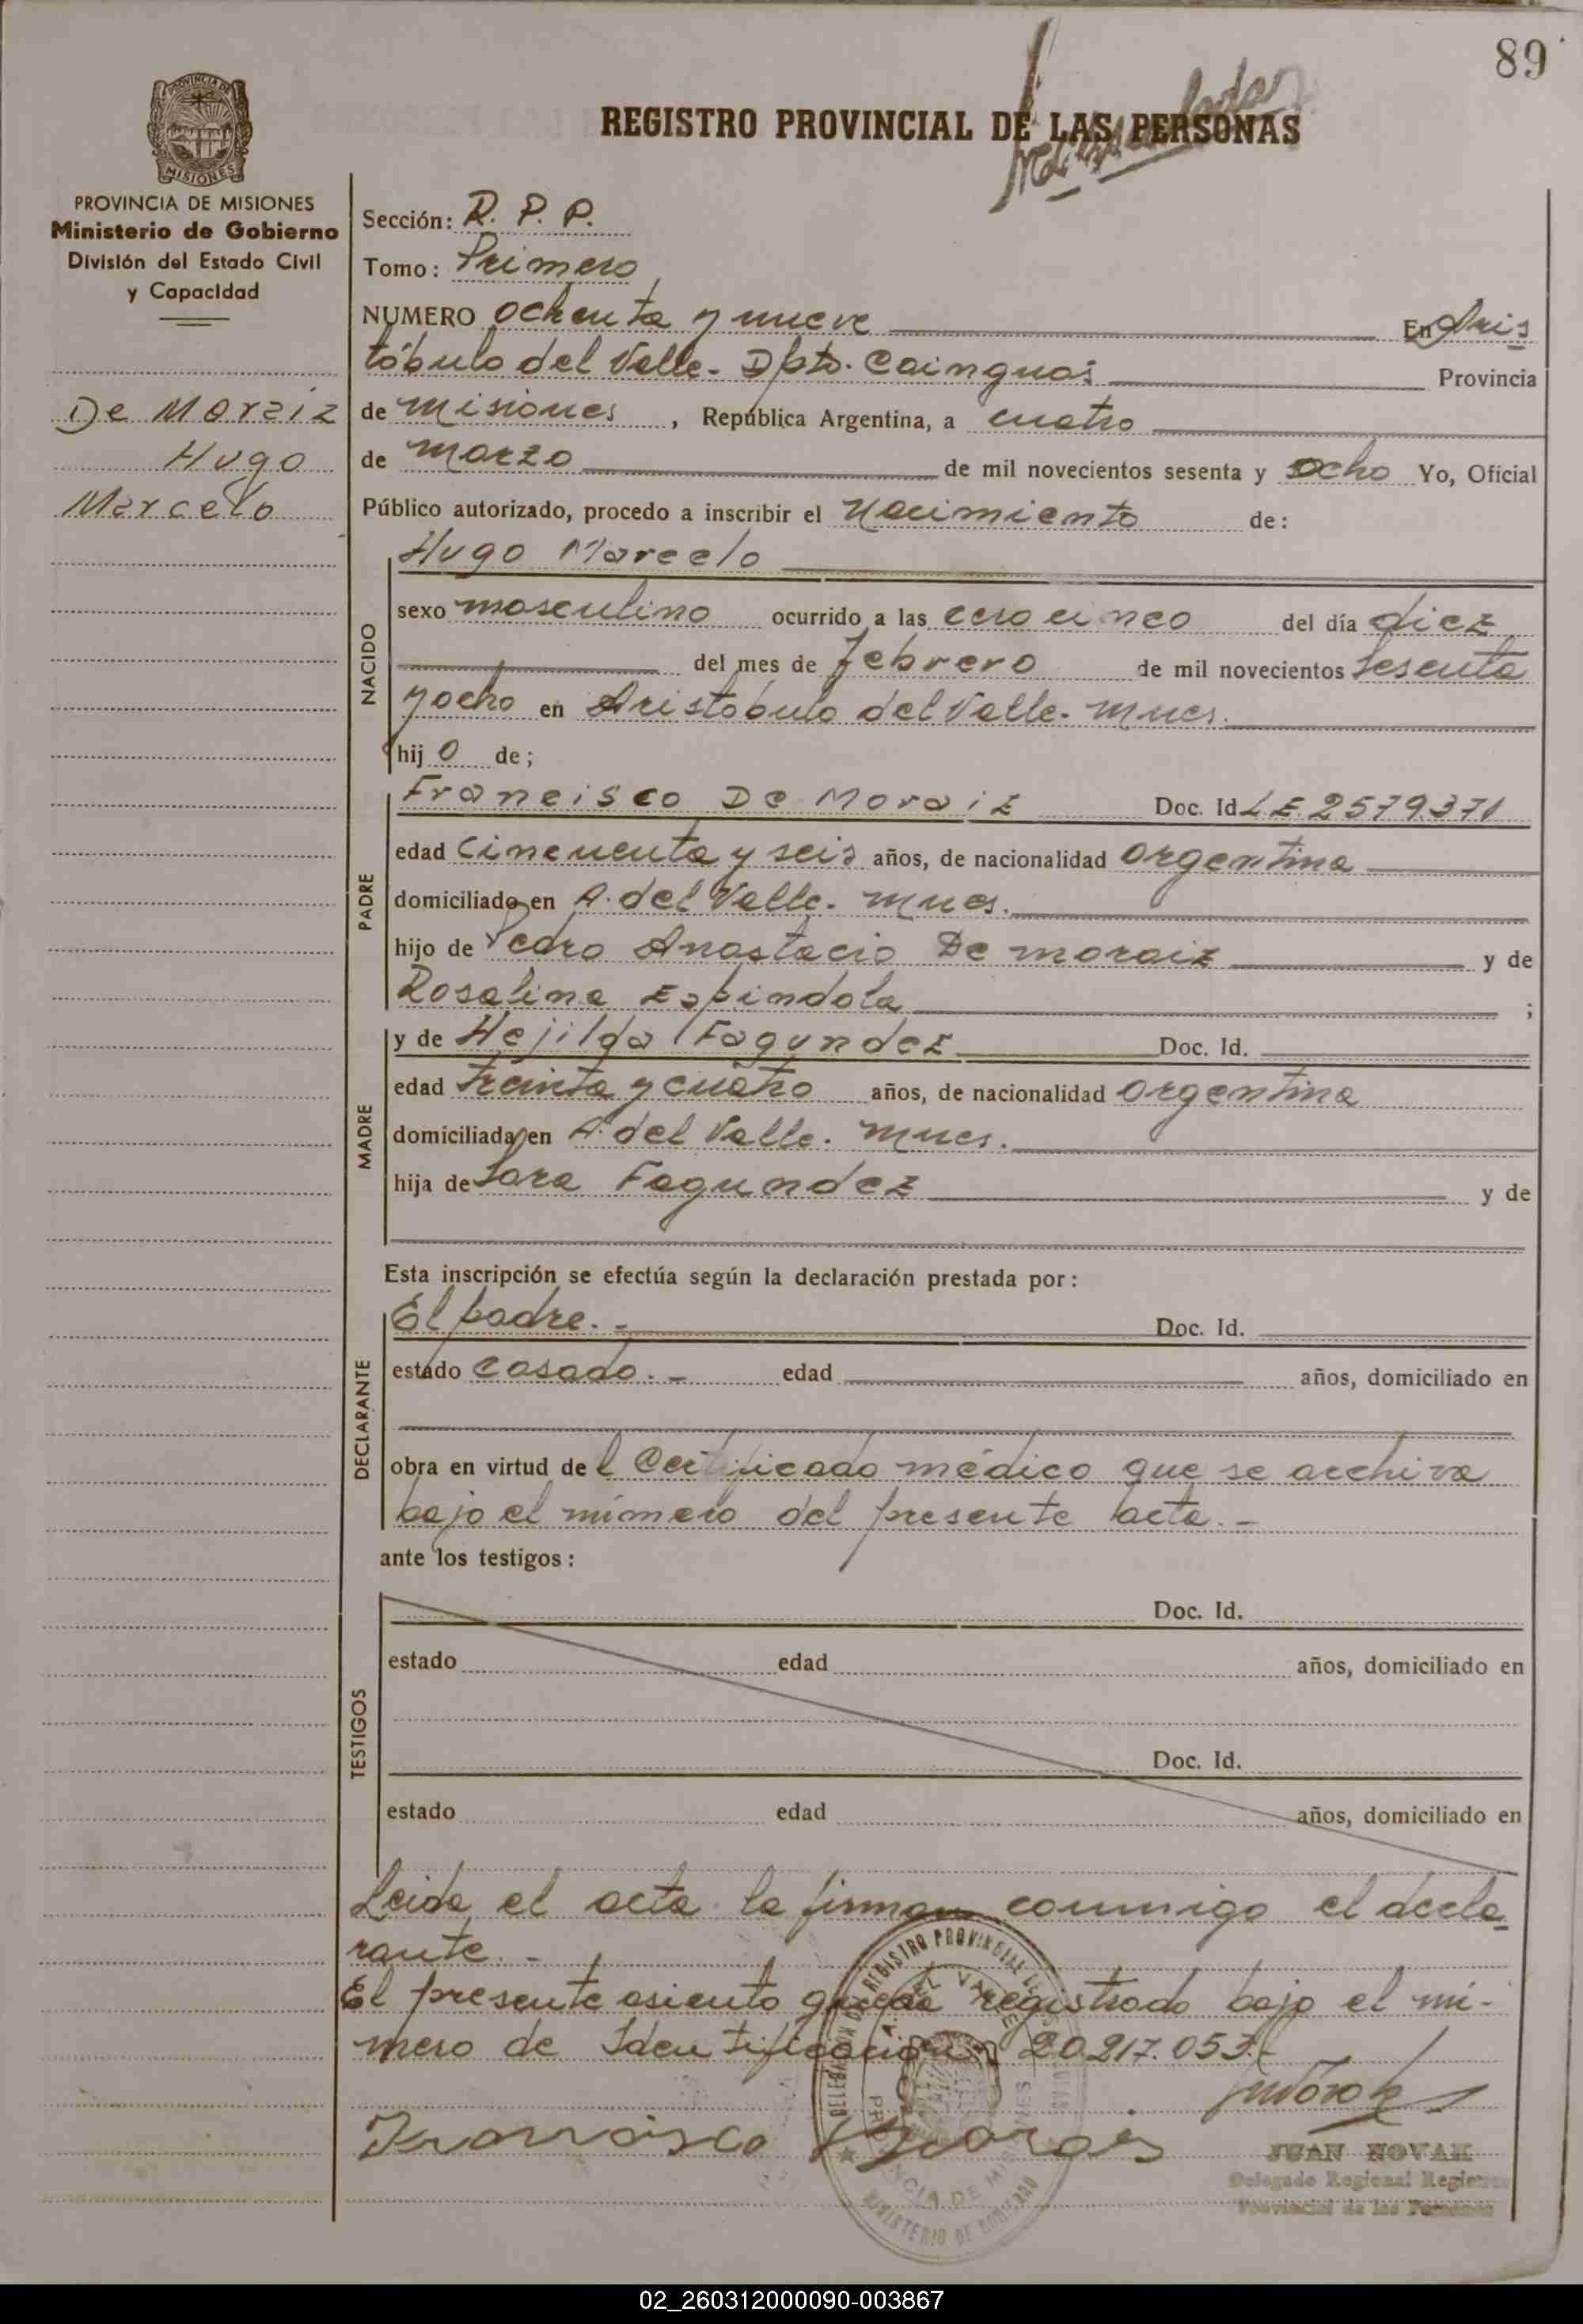 89
REGISTRO PROVINCIAL DE LAS PERSONAS
PROVINCIA DE
MISIONES
PROVINCIA DE MISIONES
Ministerio de Gobierno
División del Estado Civil
y Capacidad
De Moraiz
Hugo
Marcelo
Sección: R. P. P.
Tomo: Primero
NUMERO ochenta y nueve En Aris
tóbulo del Valle. Dpto. Cainguas Provincia
de Misiones, República Argentina, a cuatro
de marzo de mil novecientos sesenta y ocho Yo, Oficial
Público autorizado, procedo a inscribir el Nacimiento de:
NACIDO
Hugo Marcelo
sexo masculino ocurrido a las cero cinco del día diez
del mes de febrero de mil novecientos sesenta
y ocho en Aristóbulo del Valle. Mnes.
hijo de;
PADRE
Francisco De Moraiz Doc. Id L.E. 2579.371
edad cincuenta y seis años, de nacionalidad argentina
domiciliado en A. del Valle. Mnes.
hijo de Pedro Anastacio De Moraiz y de
Rosalina Espindola ;
MADRE
y de Hejilda Fagundez Doc. Id.
edad treinta y cuatro años, de nacionalidad argentina
domiciliada en A. del Valle. Mnes.
hija de Sara Fagundez y de
Esta inscripción se efectúa según la declaración prestada por:
DECLARANTE
El padre.- Doc. Id.
estado casado.- edad años, domiciliado en
obra en virtud del Certificado médico que se archiva
bajo el número del presente acta.-
ante los testigos:
TESTIGOS
Doc. Id.
estado edad años, domiciliado en
Doc. Id.
estado edad años, domiciliado en
Leida el acta la firman conmigo el decla
rante.-
El presente asiento queda registrado bajo el nú-
mero de Identificación 20.217.053.-
Francisco Moraes
JUAN NOVAK
Delegado Regional Registro
Provincial de las Personas
REGISTRO PROVINCIAL DE LAS PERSONAS
A. DEL VALLE
PROVINCIA DE MISIONES
MINISTERIO DE GOBIERNO
02_260312000090-003867